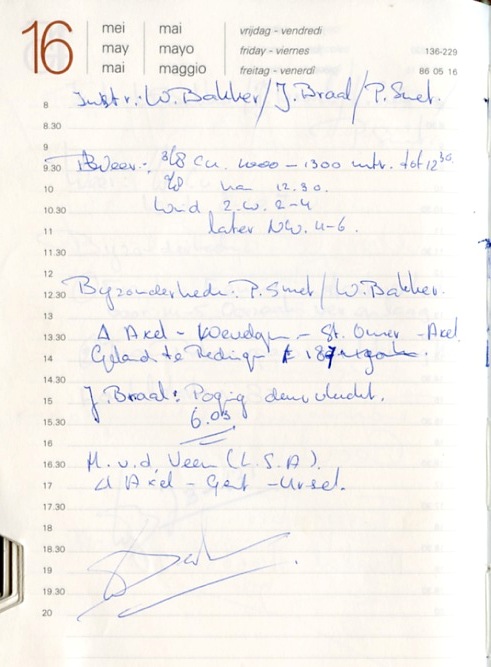 16
mei mai vrijdag - vendredi
may mayo friday - viernes 136-229
mai maggio freitag - venerdì 86 05 16
8 Instr.: W. Bakker / J. Braal / P. Smet.
8.30
9
9.30 Weer: 3/8 Cu. 1000 - 1300 mtr. tot 12.30
10 na 12.30.
10.30 Wind Z.W. 2-4
11 later NW. 4-6.
11.30
12
12.30 Byzonderheden: P. Smet / W. Bakker.
13
13.30 Δ Axel - - St. Omer - Axel
14 Geland te
14.30
15 J. Braal: Poging
15.30 6.03
16
16.30 M. v.d. Veen (L.S.A).
17 Δ Axel - Gent - Ursel.
17.30
18
18.30
19
19.30
20